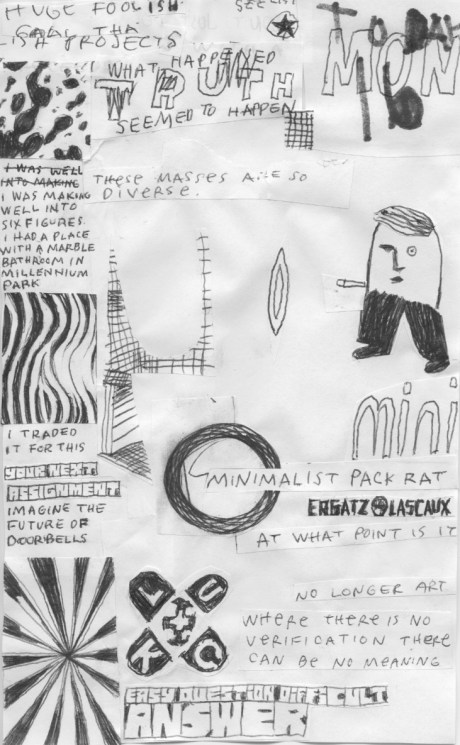 HUGE FOOLISH
IS A PROJECTS
WHAT HAPPENED
TRUTH
SEEMED TO HAPPEN
MON
16
I WAS WELL
INTO MAKING
I WAS MAKING
WELL INTO
SIX FIGURES.
I HAD A PLACE
WITH A MARBLE
BATHROOM IN
MILLENNIUM
PARK
THESE MASSES ARE SO
DIVERSE.
I TRADED
IT FOR THIS
YOUR NEXT
ASSIGNMENT
IMAGINE THE
FUTURE OF
DOORBELLS
mini
MINIMALIST PACK RAT
ERSATZ LASCAUX
AT WHAT POINT IS IT
NO LONGER ART
WHERE THERE IS NO
VERIFICATION THERE
CAN BE NO MEANING
L U
K C
EASY QUESTION DIFFICULT
ANSWER